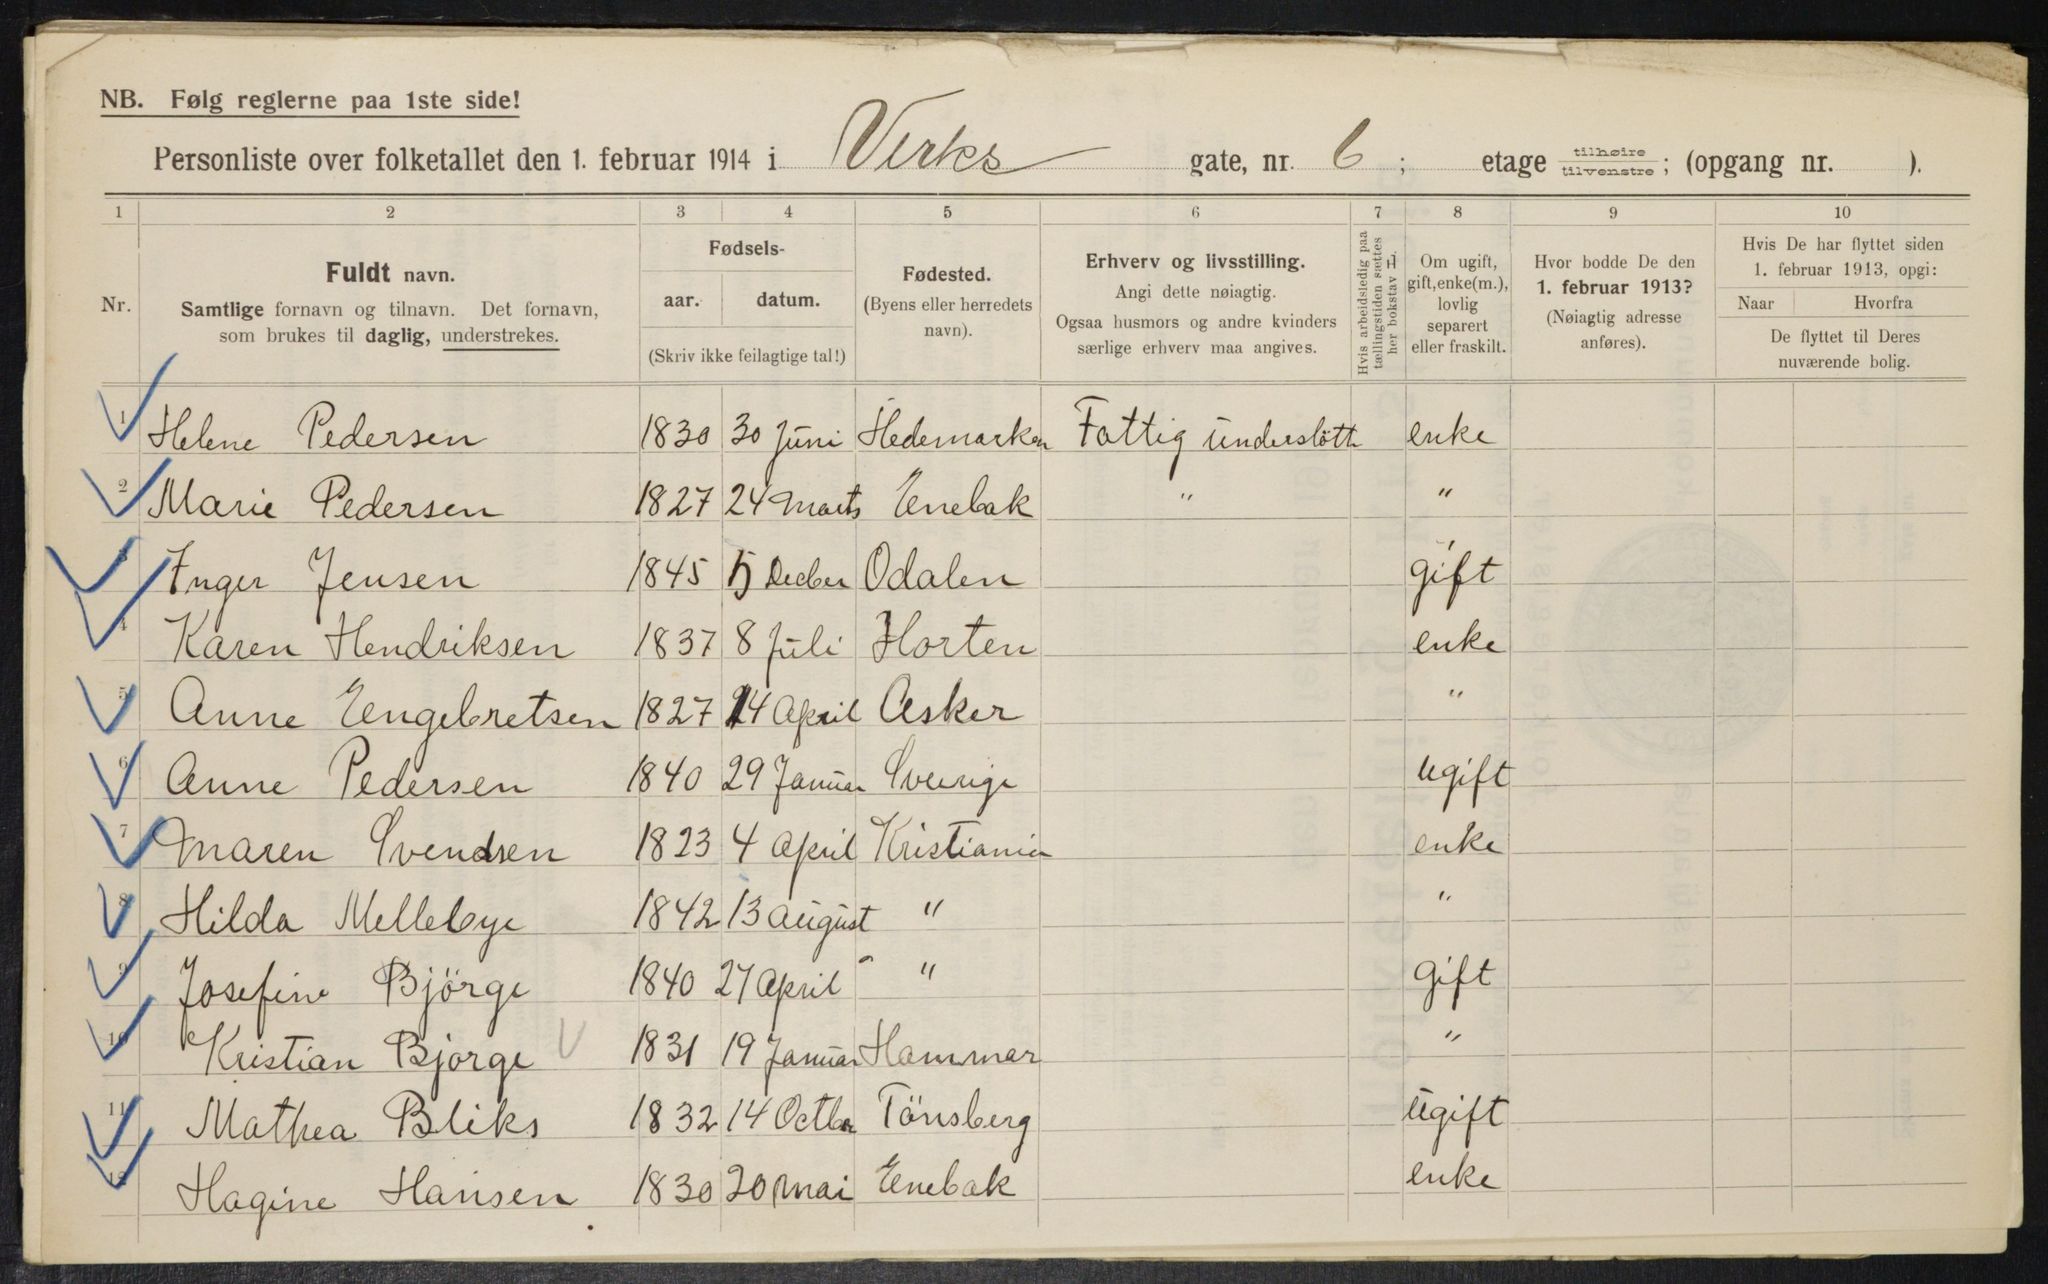 NB. Følg reglerne paa 1ste side!
Personliste over folketallet den 1. februar 1914 i Verks gate, nr. 6; etage tilhøire tilvenstre; (opgang nr. ).
1 2 3 4 5 6 7 8 9 10
Nr.
Fuldt navn.
Samtlige fornavn og tilnavn. Det fornavn,
som brukes til daglig, understrekes.
Fødsels-
aar. datum.
(Skriv ikke feilagtige tal!)
Fødested.
(Byens eller herredets
navn).
Erhverv og livsstilling.
Angi dette nøiagtig.
Ogsaa husmors og andre kvinders
særlige erhverv maa angives.
Hvis arbeidsledig paa
tællingstiden sættes
her bokstav L.
Om ugift,
gift, enke(m.),
lovlig
separert
eller fraskilt.
Hvor bodde De den
1. februar 1913?
(Nøiagtig adresse
anføres).
Hvis De har flyttet siden
1. februar 1913, opgi:
Naar Hvorfra
De flyttet til Deres
nuværende bolig.
1 Helene Pedersen 1830 30 Juni Hedemarken Fattig understött enke
2 Marie Pedersen 1827 24 Marts Enebak " "
3 Inger Jensen 1845 5 Decber Odalen gift
4 Karen Hendriksen 1837 8 Juli Horten enke
5 Anne Engebretsen 1827 14 April Asker "
6 Anne Pedersen 1840 29 Januar Sverige ugift
7 Maren Svendsen 1823 4 April Kristiania enke
8 Hilda Mellebye 1842 13 August " "
9 Josefine Björge 1840 27 April " gift
10 Kristian Bjorge 1831 19 Januar Hammar "
11 Mathea Bliks 1832 14 Octbr Tönsberg ugift
12 Hagine Hansen 1830 20 Mai Enebak enke